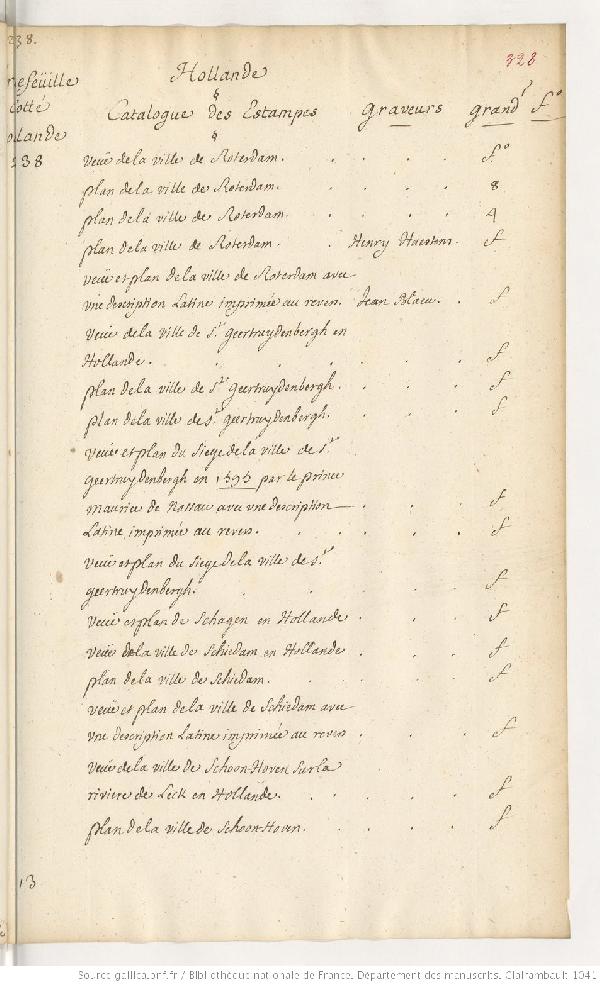 238.
323
Hollande
Catalogue des Estampes Graveurs grandr fo
cotté
238
Veüe de la ville de Roterdam. fo
plan de la ville de Roterdam. 8
plan de la ville de Roterdam. 4
plan de la ville de Roterdam. Henry Haestens. f
Veüe et plan de la ville de Roterdam avec
vne description Latine imprimée au revers. Jean Blaeu. f
Veüe de la ville de St. geertruydenbergh en
Hollande. f
plan de la ville de St. geertruydenbergh. f
plan de la ville de St. geertruydenbergh. f
Veüe et plan du siege de la ville de St.
geertruydenbergh en 1593 par le prince
maurice de Nassau avec vne description f
Latine imprimée au revers. f
Veüe et plan du siege de la ville de St.
geertruydenbergh. f
Veüe et plan de Schagen en Hollande f
Veüe de la ville de Schiedam en Hollande f
plan de la ville de Schiedam. f
Veüe et plan de la ville de Schiedam avec
vne description Latine imprimée au revers f
Veüe de la ville de Schoon-Hoven sur la
riviere de Leck en Hollande. f
plan de la ville de Schoon-Hoven. f
13
Source gallica.bnf.fr / Bibliothèque nationale de France. Département des manuscrits. Clairambault 1041